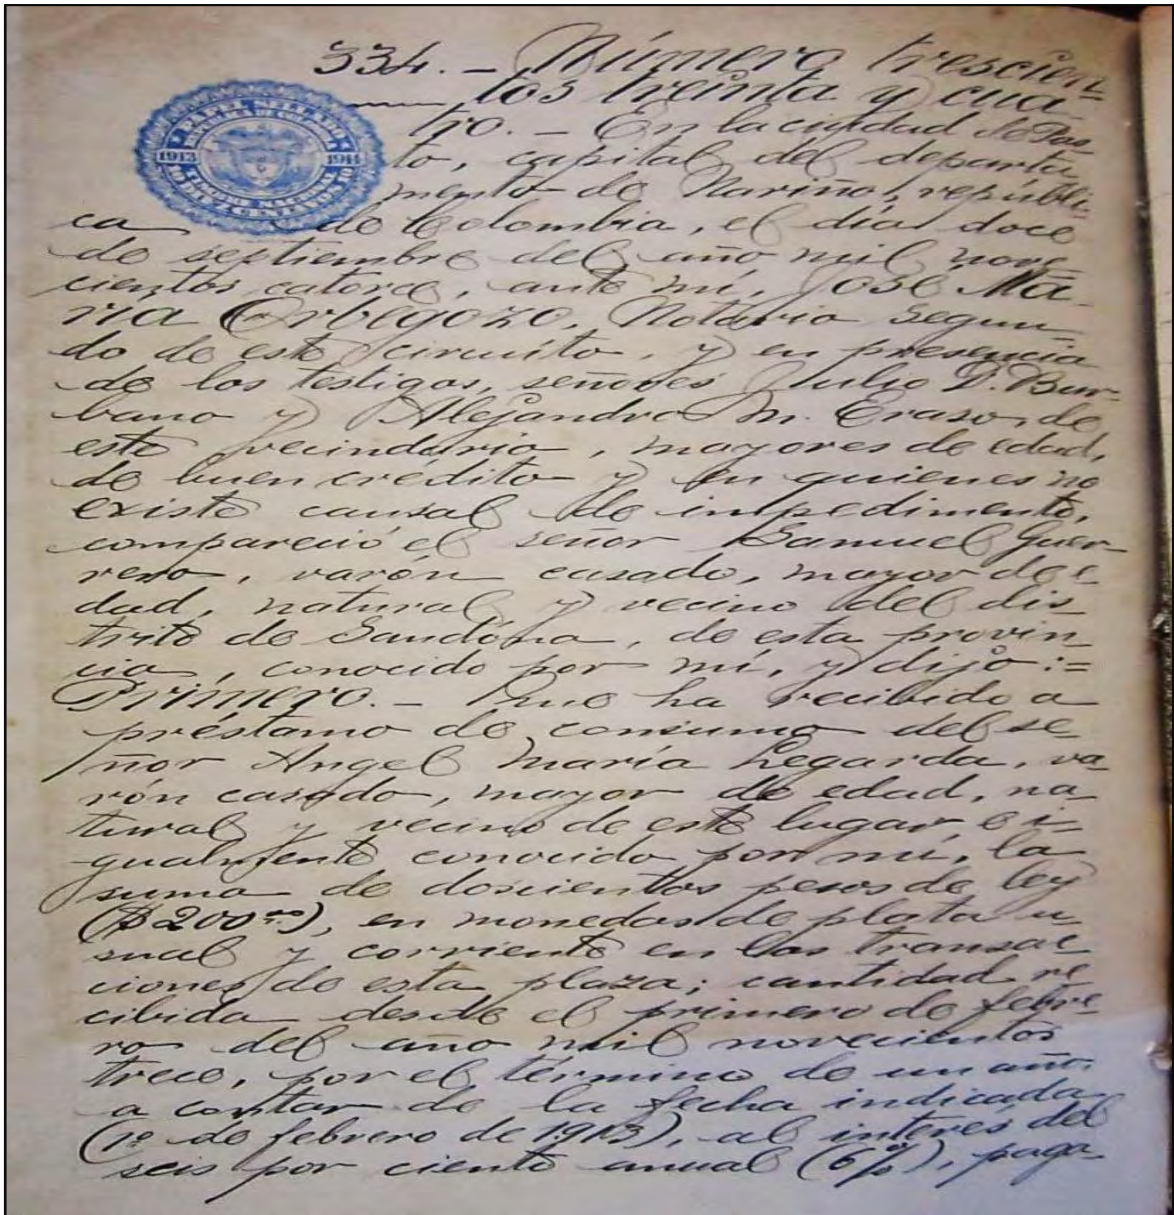 334. — Número trescien-
tos treinta y cua-
tro. — En la ciudad de Pas-
to, capital del departa-
mento de Nariño, repúbli-
ca de Colombia, el día doce
de septiembre del año mil nove-
cientos catorce, ante mí, José Ma-
ria Orbegozo, Notario Segun-
do de este circuito, y en presencia
de los testigos, señores Julio D. Bur-
bano y Alejandro M. Eraso, de
este vecindario, mayores de edad,
de buen crédito y en quienes no
existe causal de impedimento,
compareció el señor Samuel Guer-
rero, varón casado, mayor de e
dad, natural y vecino del dis
trito de Sandoná, de esta provin
cia, conocido por mí, y dijo:=
Primero. — Que ha recibido a
préstamo de consumo del se
ñor Angel María Legarda, va
rón casado, mayor de edad, na
tural y vecino de este lugar, e i=
gualmente conocido por mí, la
suma de doscientos pesos de ley
($200.oo), en monedas de plata u
sual y corriente en las transac
ciones de esta plaza; cantidad re
cibida desde el primero de febre-
ro del año mil novecientos
trece, por el término de un año,
a contar de la fecha indicada
(1º de febrero de 1913), al interés del
seis por ciento anual (6%), paga-
PAPEL SELLADO
REPUBLICA DE COLOMBIA
1913 1914